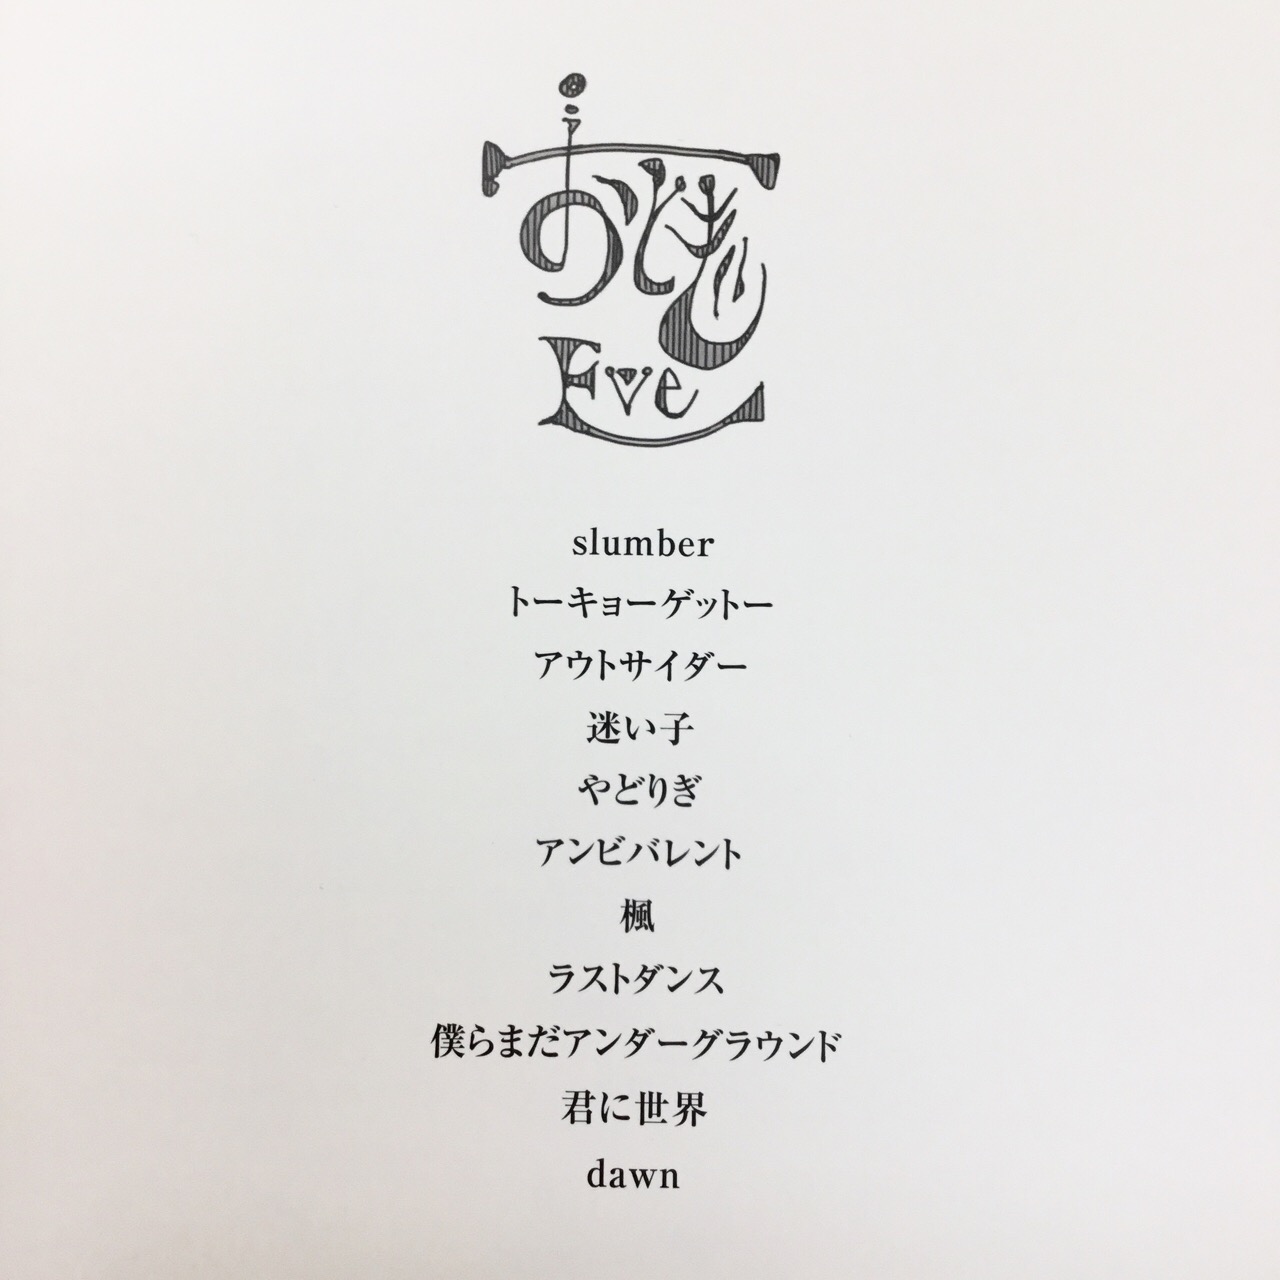 おとぎ
Eve
slumber
トーキョーゲットー
アウトサイダー
迷い子
やどりぎ
アンビバレント
楓
ラストダンス
僕らまだアンダーグラウンド
君に世界
dawn